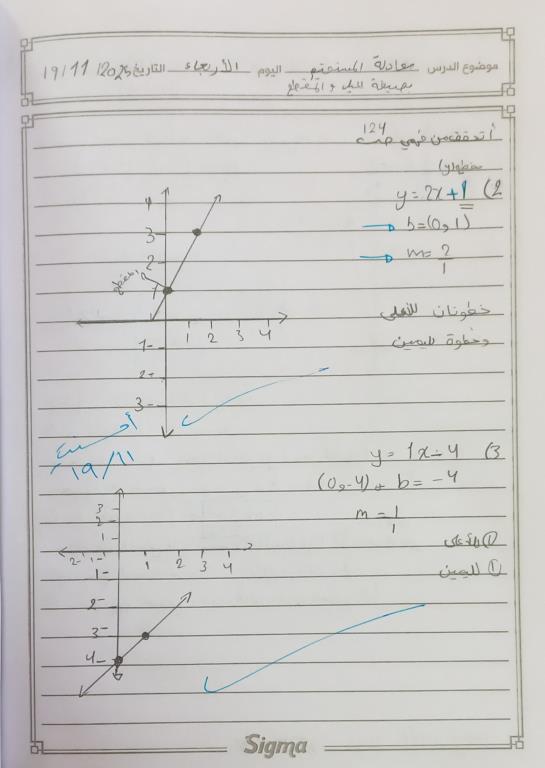 موضوع الدرس معادلة المستقيم اليوم الأربعاء التاريخ 19/11/2025
بصيغة الميل والمقطع
أتحقق من فهمي ص 124
مقطع (y)
2) y = 2x + 1
b = (0, 1)
m = 2/1
خطوتان للأعلى
وخطوة لليمين
4
3
2
1
مقطع y
1 2 3 4
1-
2-
3-
أحسنت
19/11
3) y = 1x - 4
(0, -4) + b = -4
m = 1/1
1 للأعلى
1 لليمين
3
2
1
2- 1- 1 2 3 4
1-
2-
3-
4-
Sigma